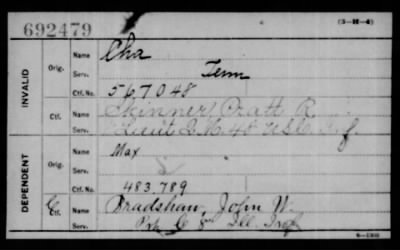 692479
(3-H-4)
INVALID
Orig.
Name Cha
Serv. Tenn
Ctf. No. 567048
Ctf.
Name Skinner Pratt R.
Serv. Lieut
DEPENDENT
Orig.
Name Max
Serv.
Ctf. No. 483,789
C Ctf.
Name Bradshaw, John W.
Serv. C 8" Ill. Inf